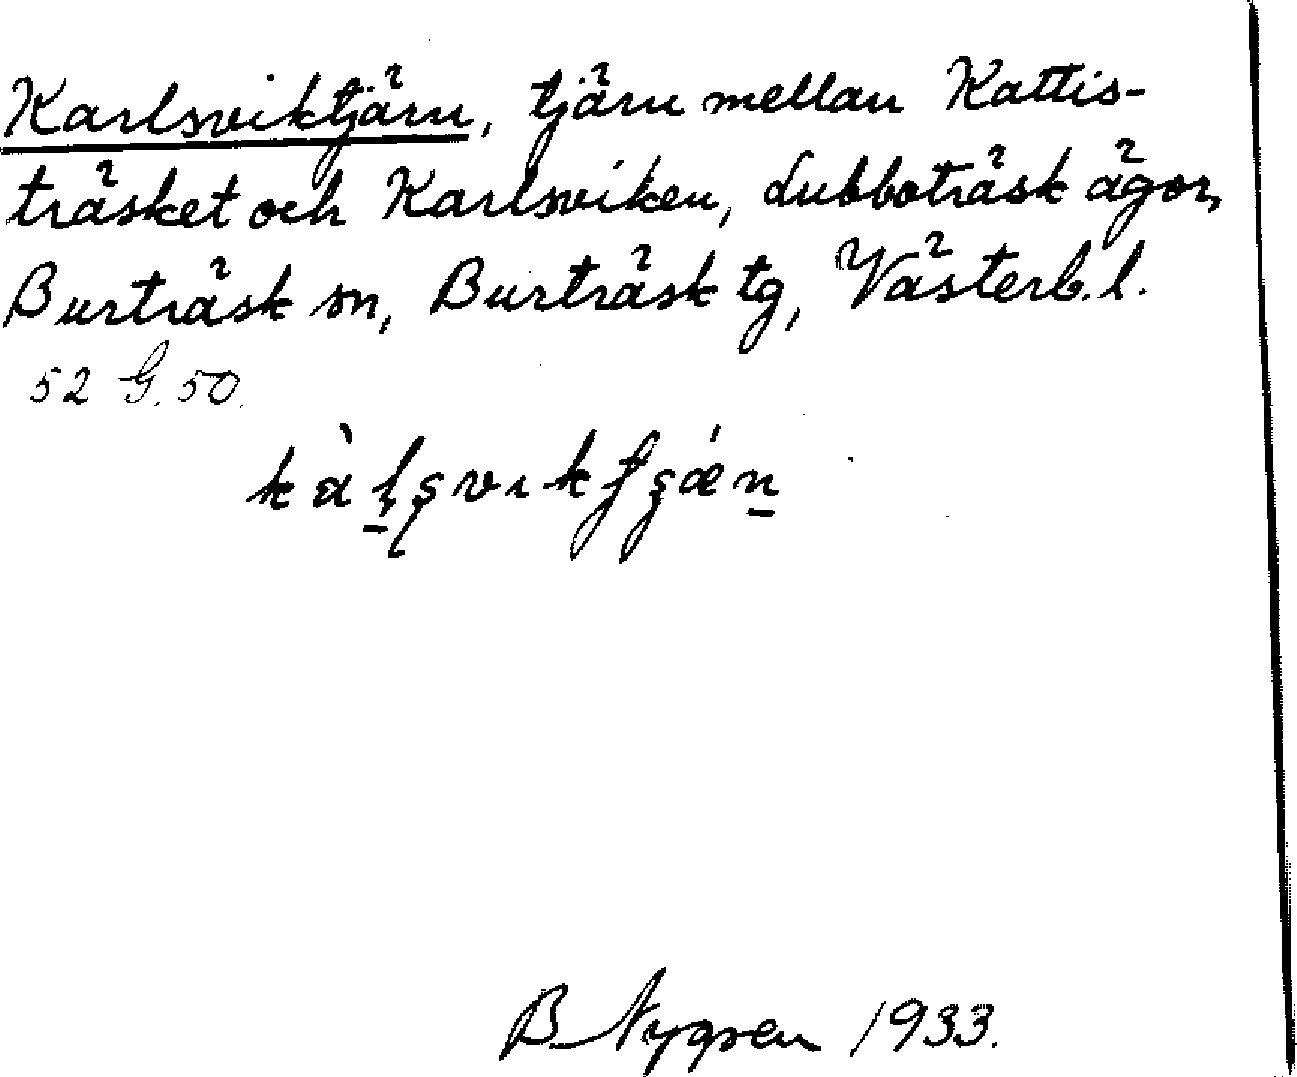 Karlsviktjärn, tjärn mellan Kattis-
träsket och Karlsviken, Lubboträsk ägor,
Burträsk sn, Burträsk tg, Västerb. l.
52 G. 50.
B Nygren 1933.